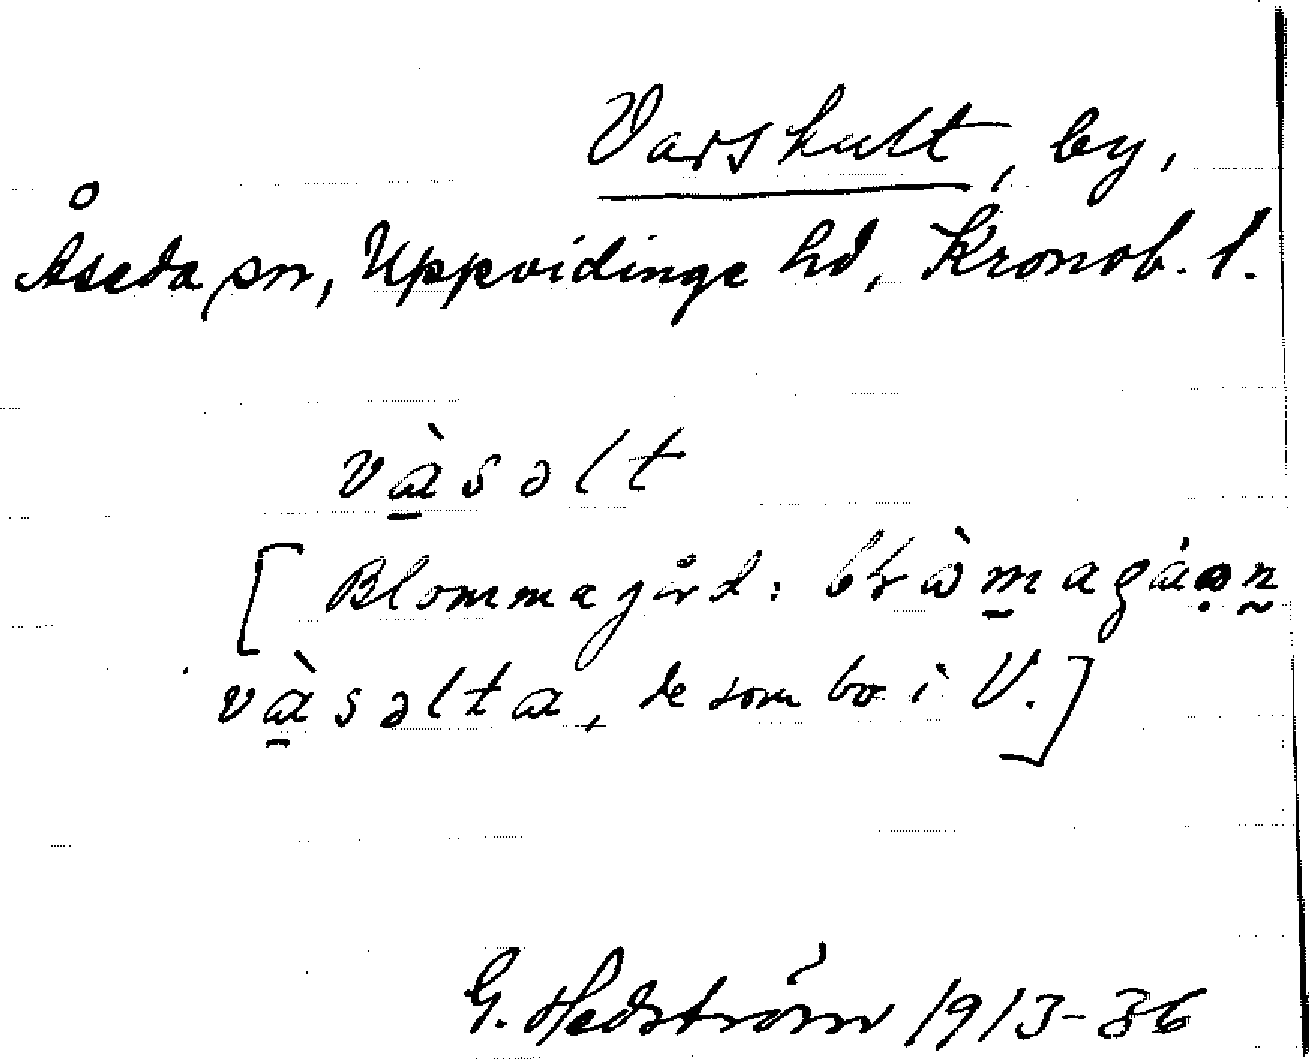 Varshult, by,
Åseda sn, Uppvidinge hd, Kronob. l.
và̱səlt
[Blommagård:
và̱səlta, de som bo i V.]
G. Hedström 1913-36